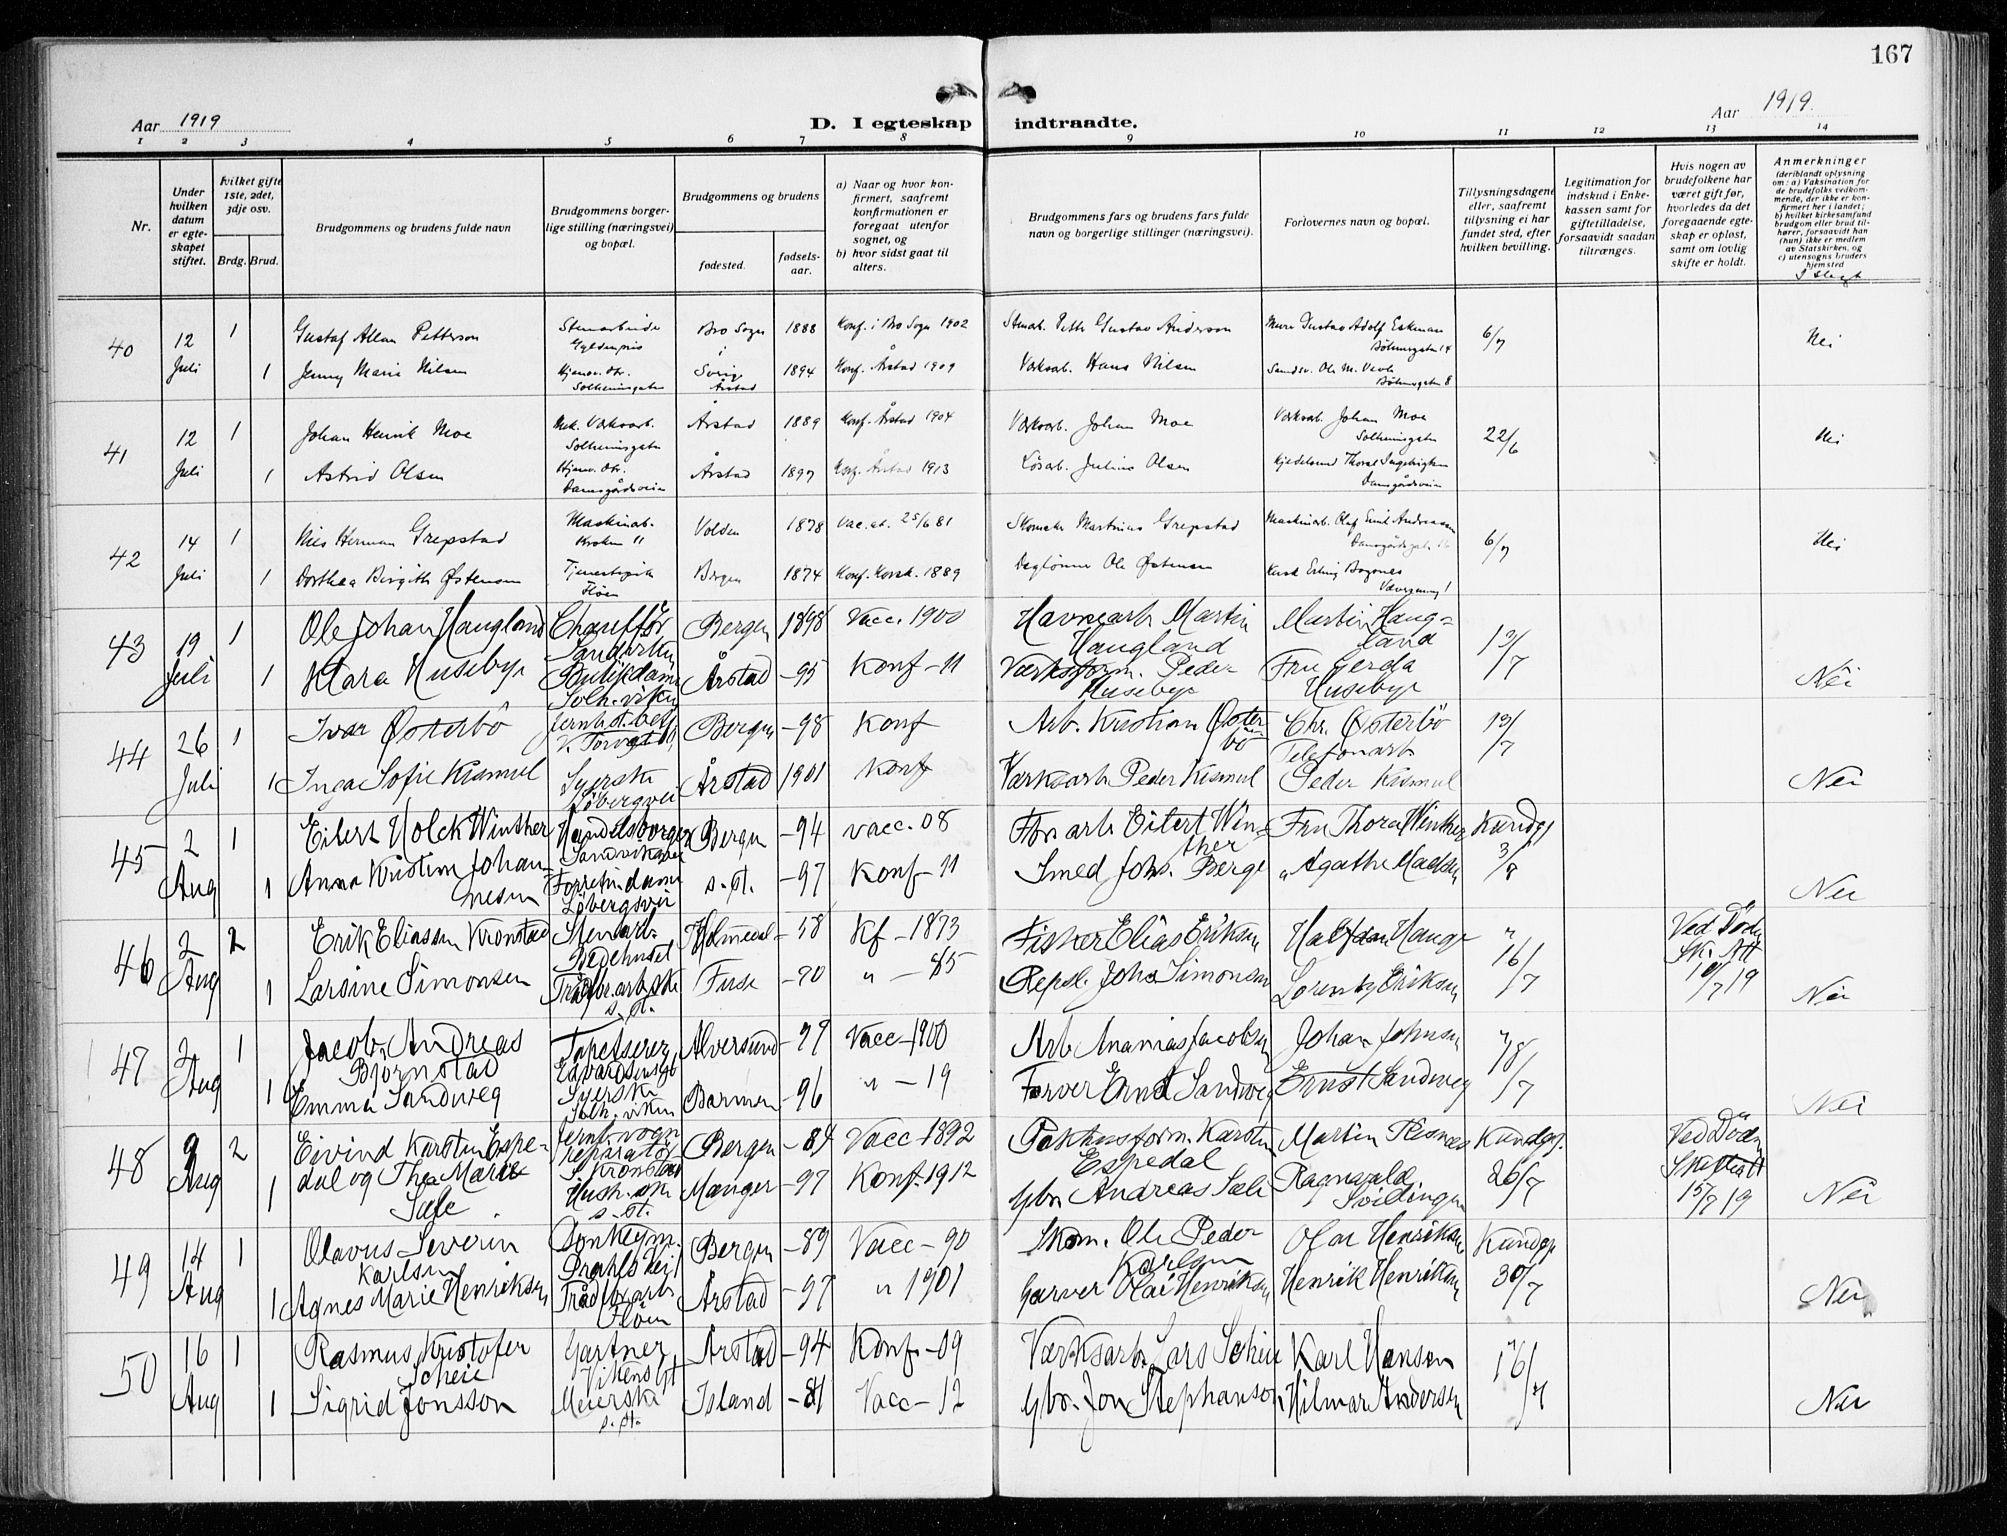 167
Aar 1919
D. I egteskap indtraadte.
Aar 1919.
1 2 3 4 5 6 7 8 9 10 11 12 13 14
Nr.
Under hvilken datum er egteskapet stiftet.
hvilket gifte 1ste, 2det, 3dje osv.
Brdg. Brud.
Brudgommens og brudens fulde navn
Brudgommens borgerlige stilling (næringsvei) og bopæl.
Brudgommens og brudens
fødested.
fødselsaar.
a) Naar og hvor konfirmert, saafremt konfirmationen er foregaat utenfor sognet, og
b) hvor sidst gaat til alters.
Brudgommens fars og brudens fars fulde navn og borgerlige stillinger (næringsvei).
Forlovernes navn og bopæl.
Tillysningsdagene eller, saafremt tillysning ei har fundet sted, efter hvilken bevilling.
Legitimation for indskud i Enkekassen samt for giftetilladelse, forsaavidt saadan tiltrænges.
Hvis nogen av brudefolkene har været gift før, hvorledes da det foregaaende egteskap er opløst, samt om lovlig skifte er holdt.
Anmerkninger (deriblandt oplysning om: a) Vaksination for de brudefolks vedkommende, der ikke er konfirmert her i landet; b) hvilket kirkesamfund brudgom eller brud tilhører, forsaavidt han (hun) ikke er medlem av Statskirken, og c) utensogns bruders hjemsted
I slegt
40 12 Juli 1 Gustaf Allan Petterson Stenarbeider Gyldenpris Bro Sogn i Sverig 1888 Konf. i Bro Sogn 1902 Stenarb. Petter Gustav Anderson Gustav Adolf Eskman Bøhmergaten 14 6/7 Nei
1 Jenny Marie Nilsen Hjemv. dtr. Solheimsgaten Årstad 1894 Konf. Årstad 1909 Værksarb. Hans Nilsen Bøhmergaten 8
41 12 Juli 1 Johan Henrik Moe Mek. Værksarb. Solheimsgaten Årstad 1889 Konf. Årstad 1904 Værksarb. Johan Moe Værksarb. Johan Moe Solheimsgaten 22/6 Nei
1 Astrid Olsen Hjemv. dtr. Damsgårdsveien Årstad 1897 Konf. Årstad 1913 Løsarb. Julius Olsen Damsgårdsveien
42 14 Juli 1 Nils Herman Grepstad Maskinarb. Kroken 11 Volden 1878 Vac. at. 25/6 81 Skomaker Martinius Grepstad Maskinarb. Olaf Emil Andreassen 6/7 Nei
1 Dorthea Birgitte Østensen Tjenestepike Fløen Bergen 1874 Konf. Korsk. 1889 Daglønner Ole Østensen
43 19 Juli 1 Ole Johan Haugland Chauffør Bergen 1898 Vacc. 1900 Havnearb Martin Haugland Martin Haugland 13/7
1 Klara Huseby Butikdame Solh.viken Årstad -95 Konf -11 Værksform. Peder Huseby Fru Gerda Huseby Nei
44 26 Juli 1 Ivar Østerbö Bergen -98 Konf Arb. Kristian Østerbö Chr. Østerbö Telefonarb 13/7
1 Inga Sofie Kismul Syerske Löbergsvei Årstad 1901 Konf Værksarb Peder Kismul Peder Kismul Nei
45 2 Aug 1 Eilert Holck Winther Handelsborger Sandviksvei Bergen -94 vacc. 08 Eilert Winther Fru Thora Winther Kundgj 3/8
1 Anna Kristine Johannesen Forretn.dame Löbergsvei s.st. -97 Konf -11 Smed Johs. Berge " Agathe Madsen Nei
46 2 Aug 2 Erik Eliassen Kronstad Stenarb. Bedehuset Holmedal -58 Kf -1873 Fisker Elias Eriksen Halfdan Hauge " 16/7 Ved Döden Sk. Att 10/7 19
1 Larsine Simonsen s.st. Fuse -70 " -85 Repsl. Johs Simonsen Lorentz Eriksen Nei
47 2 Aug 1 Jacob Andreas Bjørnstad Tapetserer Edvardsensgt Alversund -97 Vacc -1900 Arb Ananias Jacobsen Johan Johnsen " 18/7
1 Emma Sandweg Syerske Solh.viken Barmen -96 " -19 Farver Ernst Sandweg Ernst Sandweg Nei
48 9 Aug 2 Eivind Karsten Espedal og Thea Marie Sæle Jernb.vogn reparatör Kronstad Bergen -84 Vacc -1892 Pakhusform. Karsten Espedal Martin Kundgj. 26/7 Ved Döden Skifteatt 15/7 19
1 s.st. Manger -97 Konf. 1912 Gbr. Andreas Sæle Ragnvald Nei
49 14 Aug 1 Olavus Severin Karlsen Donkeym. Bergen -89 Vacc -90 Skom. Ole Peder Karlsen Olai Henriksen Kundgj 30/7
1 Agnes Marie Henriksen Fløen Årstad -97 " 1901 Garver Olai Henriksen Henrik Henriksen Nei
50 16 Aug 1 Rasmus Kristofer Scheie Gartner Vikensgt Årstad -94 Konf. -09 Værksarb. Lars Scheie Karl Hansen " 16/7
1 Sigrid Jonsson Meierske s.st. Island -81 Vacc -12 Gbr. Jon Stephanson Hilmar Andersen Nei